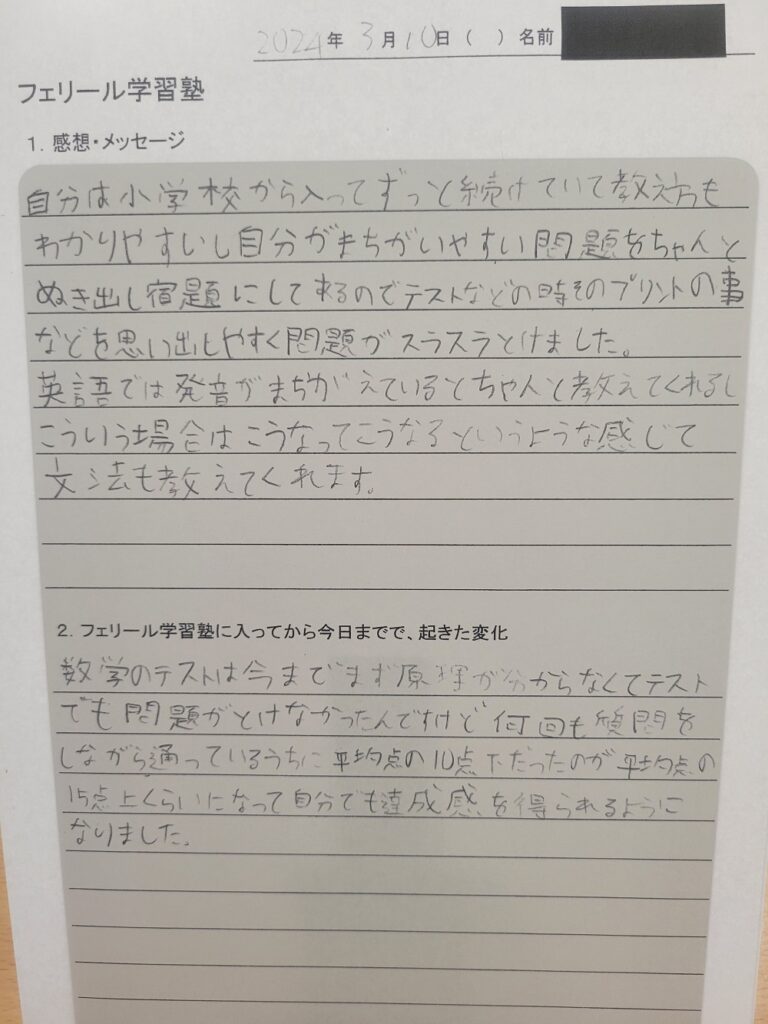 2024年 3月10日( ) 名前
フェリール学習塾
1. 感想・メッセージ
自分は小学校から入ってずっと続けていて教え方も
わかりやすいし自分がまちがいやすい問題をちゃんと
ぬき出し宿題にして来るのでテストなどの時そのプリントの事
などを思い出しやすく問題がスラスラとけました。
英語では発音がまちがえているとちゃんと教えてくれるし
こういう場合はこうなってこうなるというような感じで
文法も教えてくれます。
2. フェリール学習塾に入ってから今日までで、起きた変化
数学のテストは今までまず原理が分からなくてテスト
でも問題がとけなかったんですけど何回も質問を
しながら通っているうちに平均点の10点下だったのが平均点の
15点上くらいになって自分でも達成感を得られるように
なりました。